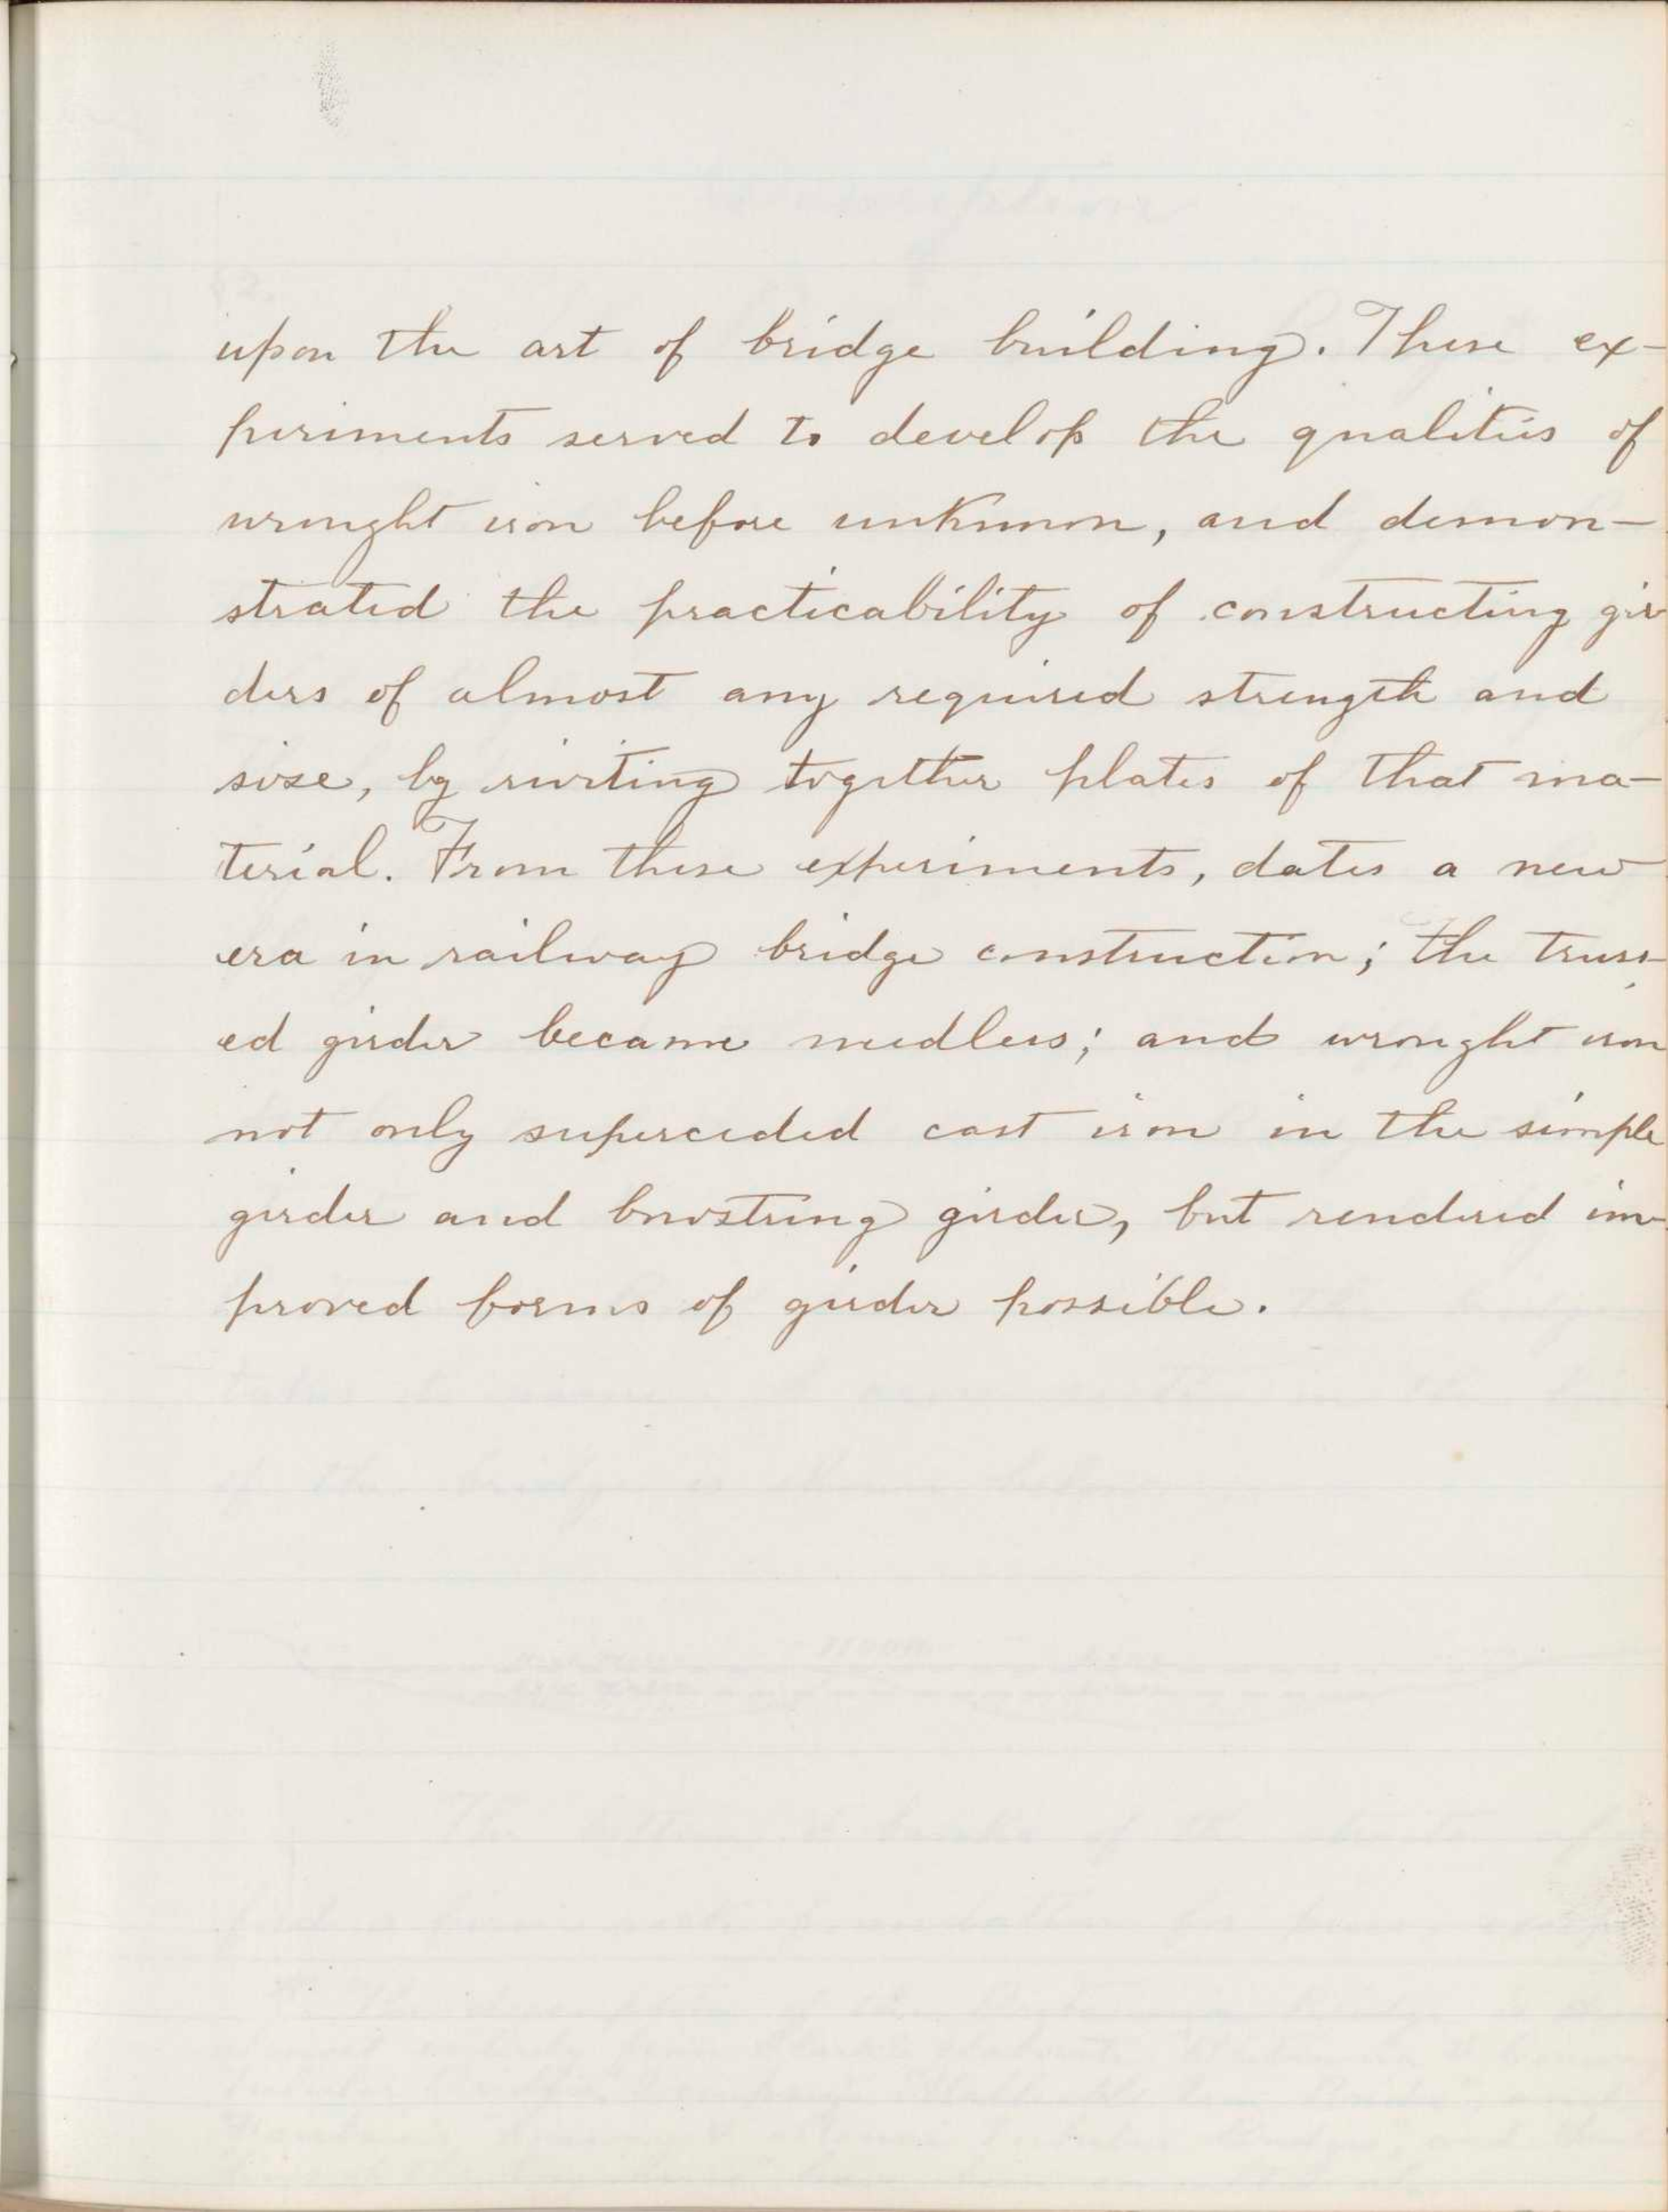 upon the art of bridge building. These ex-
periments served to develop the qualities of
wrought iron before unknown, and demon-
strated the practicability of constructing gir
ders of almost any required strength and
size, by riviting together plates of that ma-
terial. From these experiments, dates a new
era in railway bridge construction; the truss-
ed girder became needless; and wrought iron
not only superceded cast iron in the simple
girder and bowstring girder, but rendered im-
proved forms of girder possible.